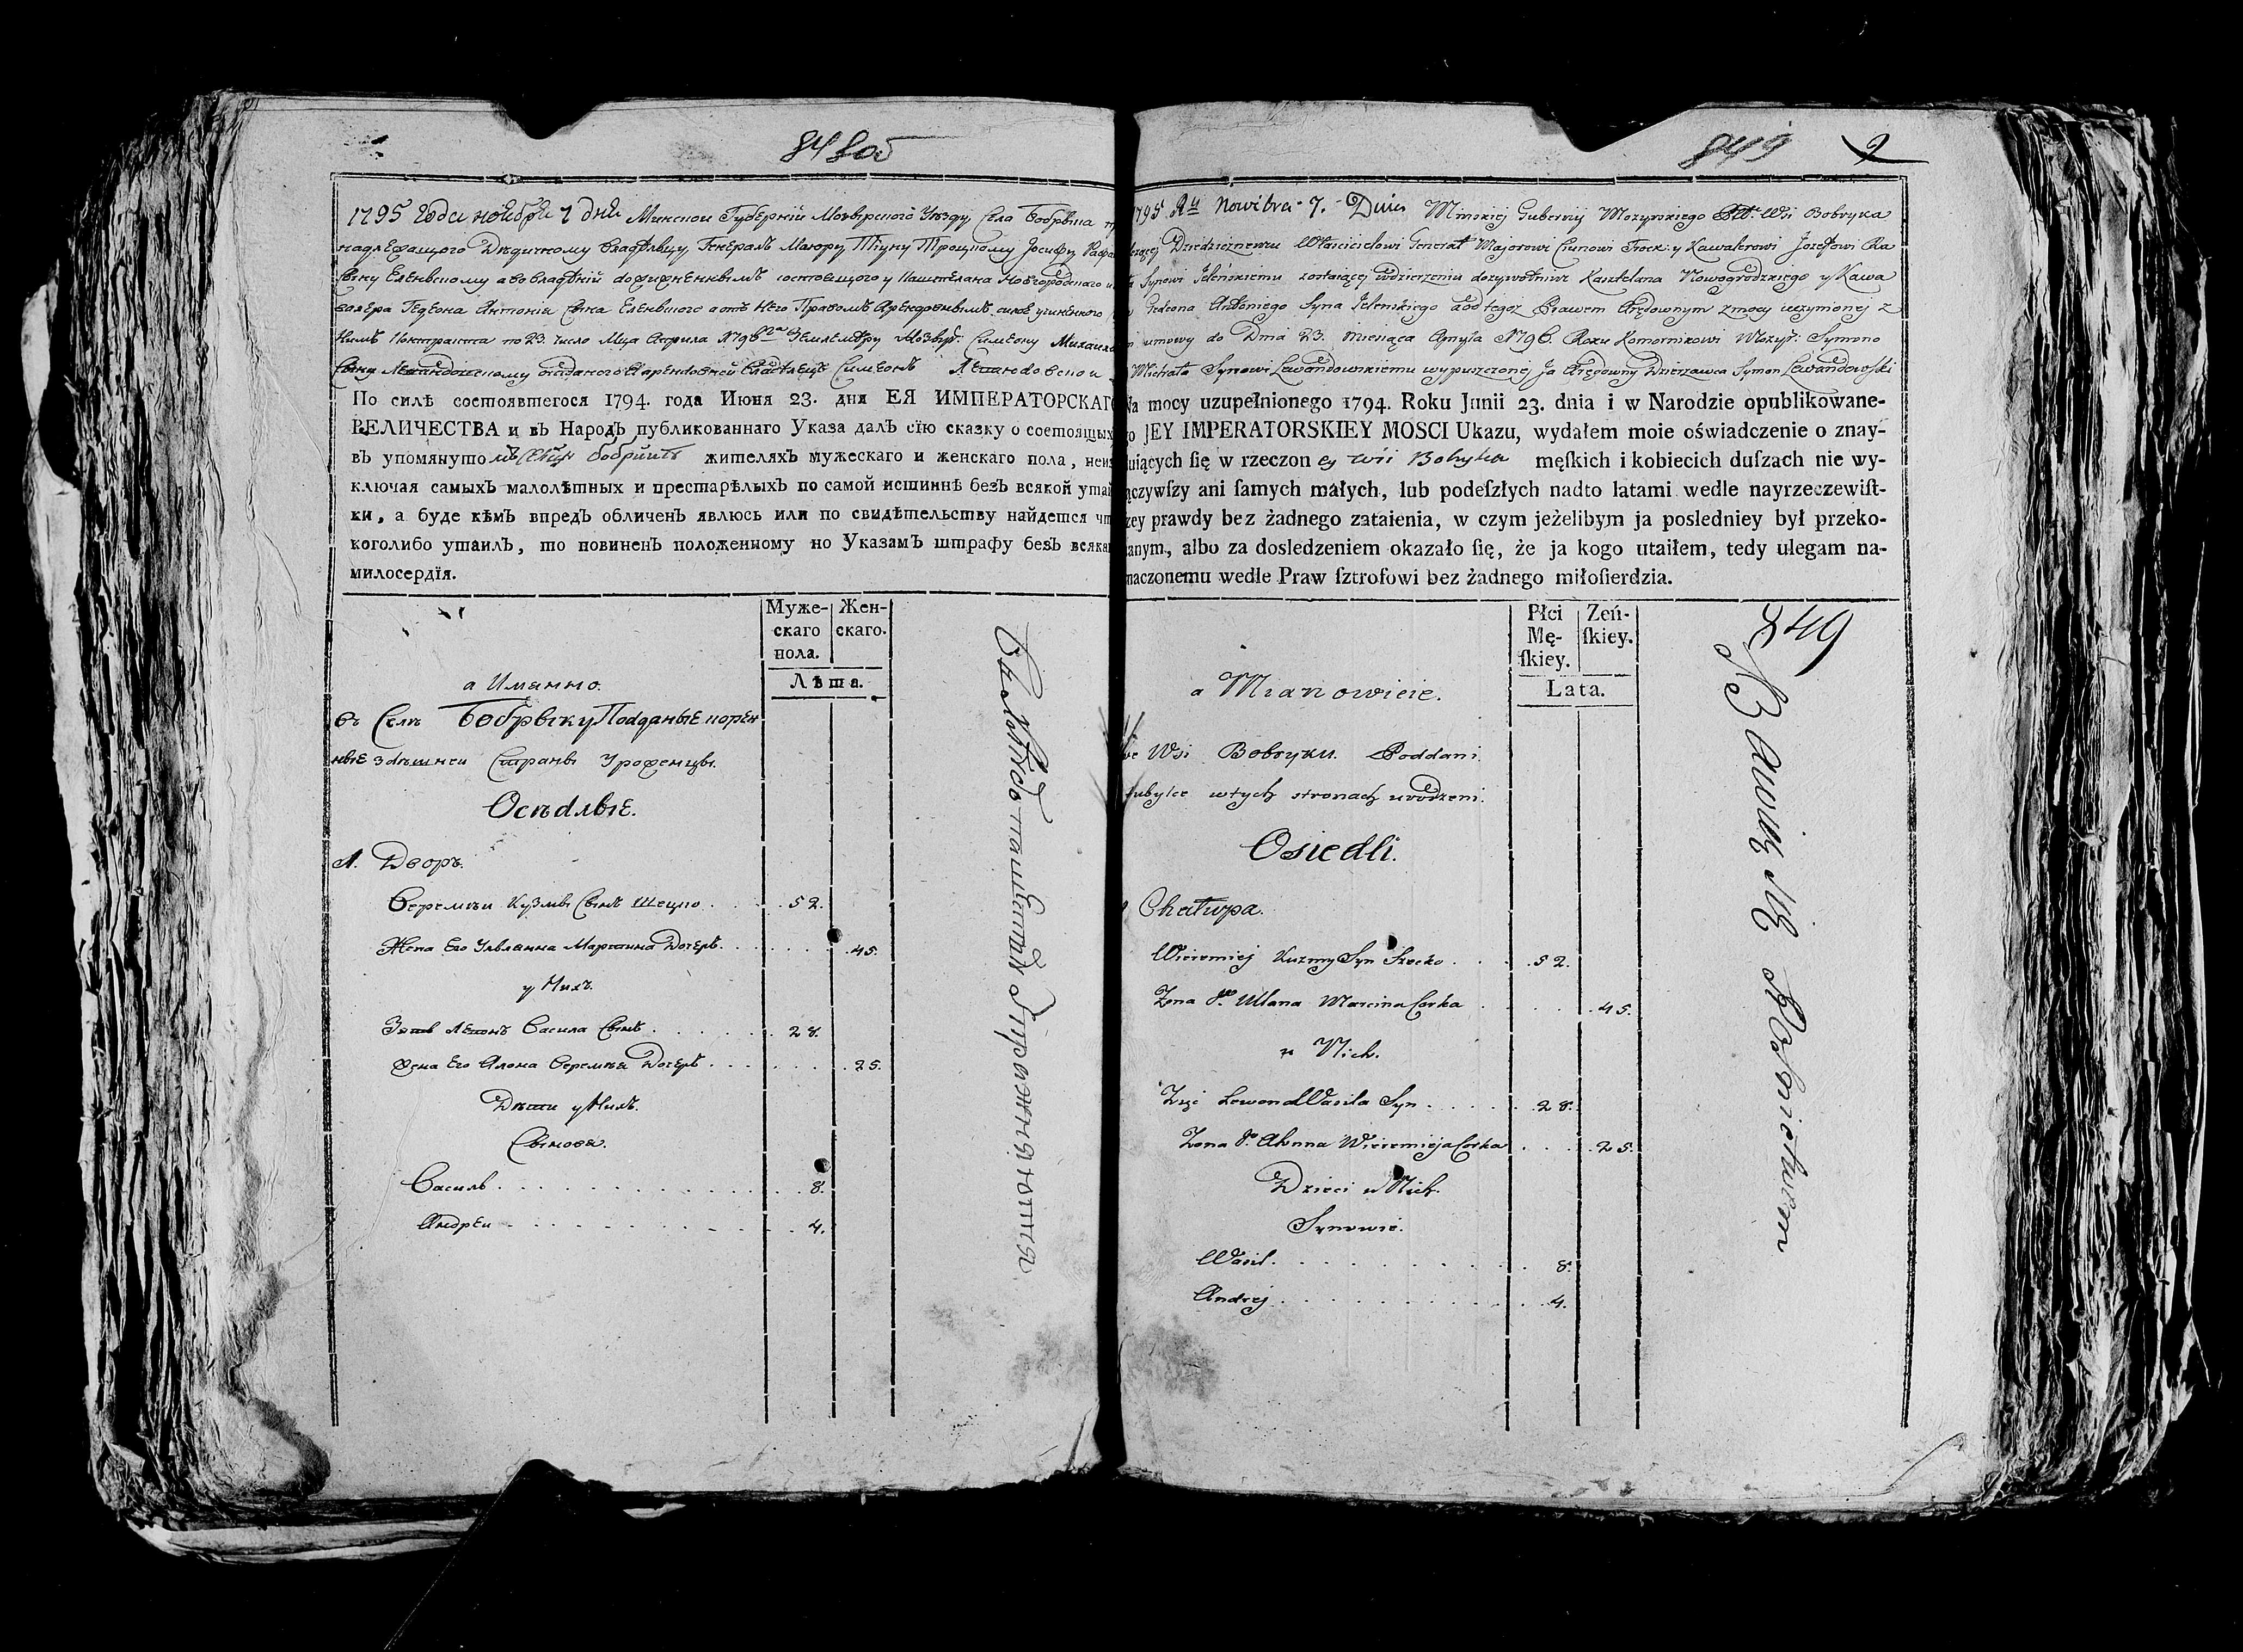 848об
1795 года ноября 7 дня Минской Губернїи Мозырского Уезду Села Бобрыка
надлежащого Дедичному Владельцу Генералъ Маіору Тіуну Троцкому Іосифу
сыну Еленьскому а во владенїи состоещого у Каштеляна Новгородского
Гедеона Антонїя сына Еленьского а отъ него Правомъ Арендовнымъ
Нимъ Контракта по 23. число Мца Априля 1796 Мозыр: Симеону Михаила
сыну Симеонъ
По силѣ состоявшегося 1794. года Июня 23. дня ЕЯ ИМПЕРАТОРСКАГО
ВЕЛИЧЕСТВА и вЪ НародЪ публикованнаго Указа далЪ сїю сказку о состоящихЪ
вЪ упомянуто жителяхЪ мужескаго и женскаго пола, неиз
ключая самыхЪ малолѣтныхЪ и престарѣлыхЪ по самой истиннѣ безЪ всякой утай
ки, а буде кѣмЪ впредЪ обличенЪ явлюсь или по свидѣтельству найдется чт
коголибо утаилЪ, то повиненЪ положенному по УказамЪ штрафу безЪ всяка
милосердїя.
Муже-
скаго
пола.
Жен-
скаго.
Лѣта.
а Имянно.
въ Селе Бобрыку Подданые корен
ные здешней Страны Уроженцы.
Оседлые.
1. Дворъ.
Веремеи Кузмы Сынъ Шецко . . . 52.
Жена Его Улляна Мартина Дочеръ . . . 45.
у Нихъ.
Зять Левонъ Васила Сынъ . . . 28.
Жена Его Алона Веремея Дочеръ . . . 25.
Дети у Нихъ.
Сынове.
Василь . . . 8.
Андреи . . . 4.
849 2
1795 Ru Novebra 7. Dnia Minskiej Gubernij Mozyrskiego Pttu Wsi Bobryka
Dziedzicznemu Właścicielowi Generał Majorowi Ciunowi Trock: y Kawalerowi Jozefowi Ra
Synowi Jeleńskiemu zostaiącej w dzierżeniu dożywotnim Kasztelana Nowogrodzkiego y Kawa
Gedeona Antoniego Syna Jelenskiego od tegoż Prawem Arędownym z mocy uczynionej z
umowy do Dnia 23. miesiąca Apryla 1796. Roku Komornikowi Mozyr: Symono
Michała Synowi Lewandowskiemu wypuszczonej Ja Arędowny Dzierżawca Symon Lewandowski
Na mocy uzupełnionego 1794. Roku Junii 23. dnia i w Narodzie opublikowane-
go JEY IMPERATORSKIEY MOSCI Ukazu, wydałem moie oświadczenie o znay-
duiących ſię w rzeczon ey wsi Bobryka męſkich i kobiecich duſzach nie wy-
łączywſzy ani ſamych małych, lub podeſzłych nadto latami wedle nayrzeczewiſt-
szey prawdy bez żadnego zataienia, w czym jeżelibym ja posledniey był przeko-
nanym, albo za dosledzeniem okazało ſię, że ja kogo utaiłem, tedy ulegam na-
znaczonemu wedle Praw ſztrofowi bez żadnego miłoſierdzia.
Płci
Mę-
ſkiey.
Zeń-
ſkiey.
Lata.
849
a Mianowicie.
we Wsi Bobryku. Poddani
tubylce w tych stronach urodzeni.
Osiedli.
Chatupa.
Wieremiej Kuzmy Syn Szecko . . . 52.
Zona Jo Ullana Marcina Corka . . . 45.
u Nich.
Zięć Lewon Wasila Syn . . . 28.
Zona Jo Alonna Wieremieja Corka . . . 25.
Dzieci u Nich.
Synowie.
Wasil . . . 8.
Andrej . . . 4.